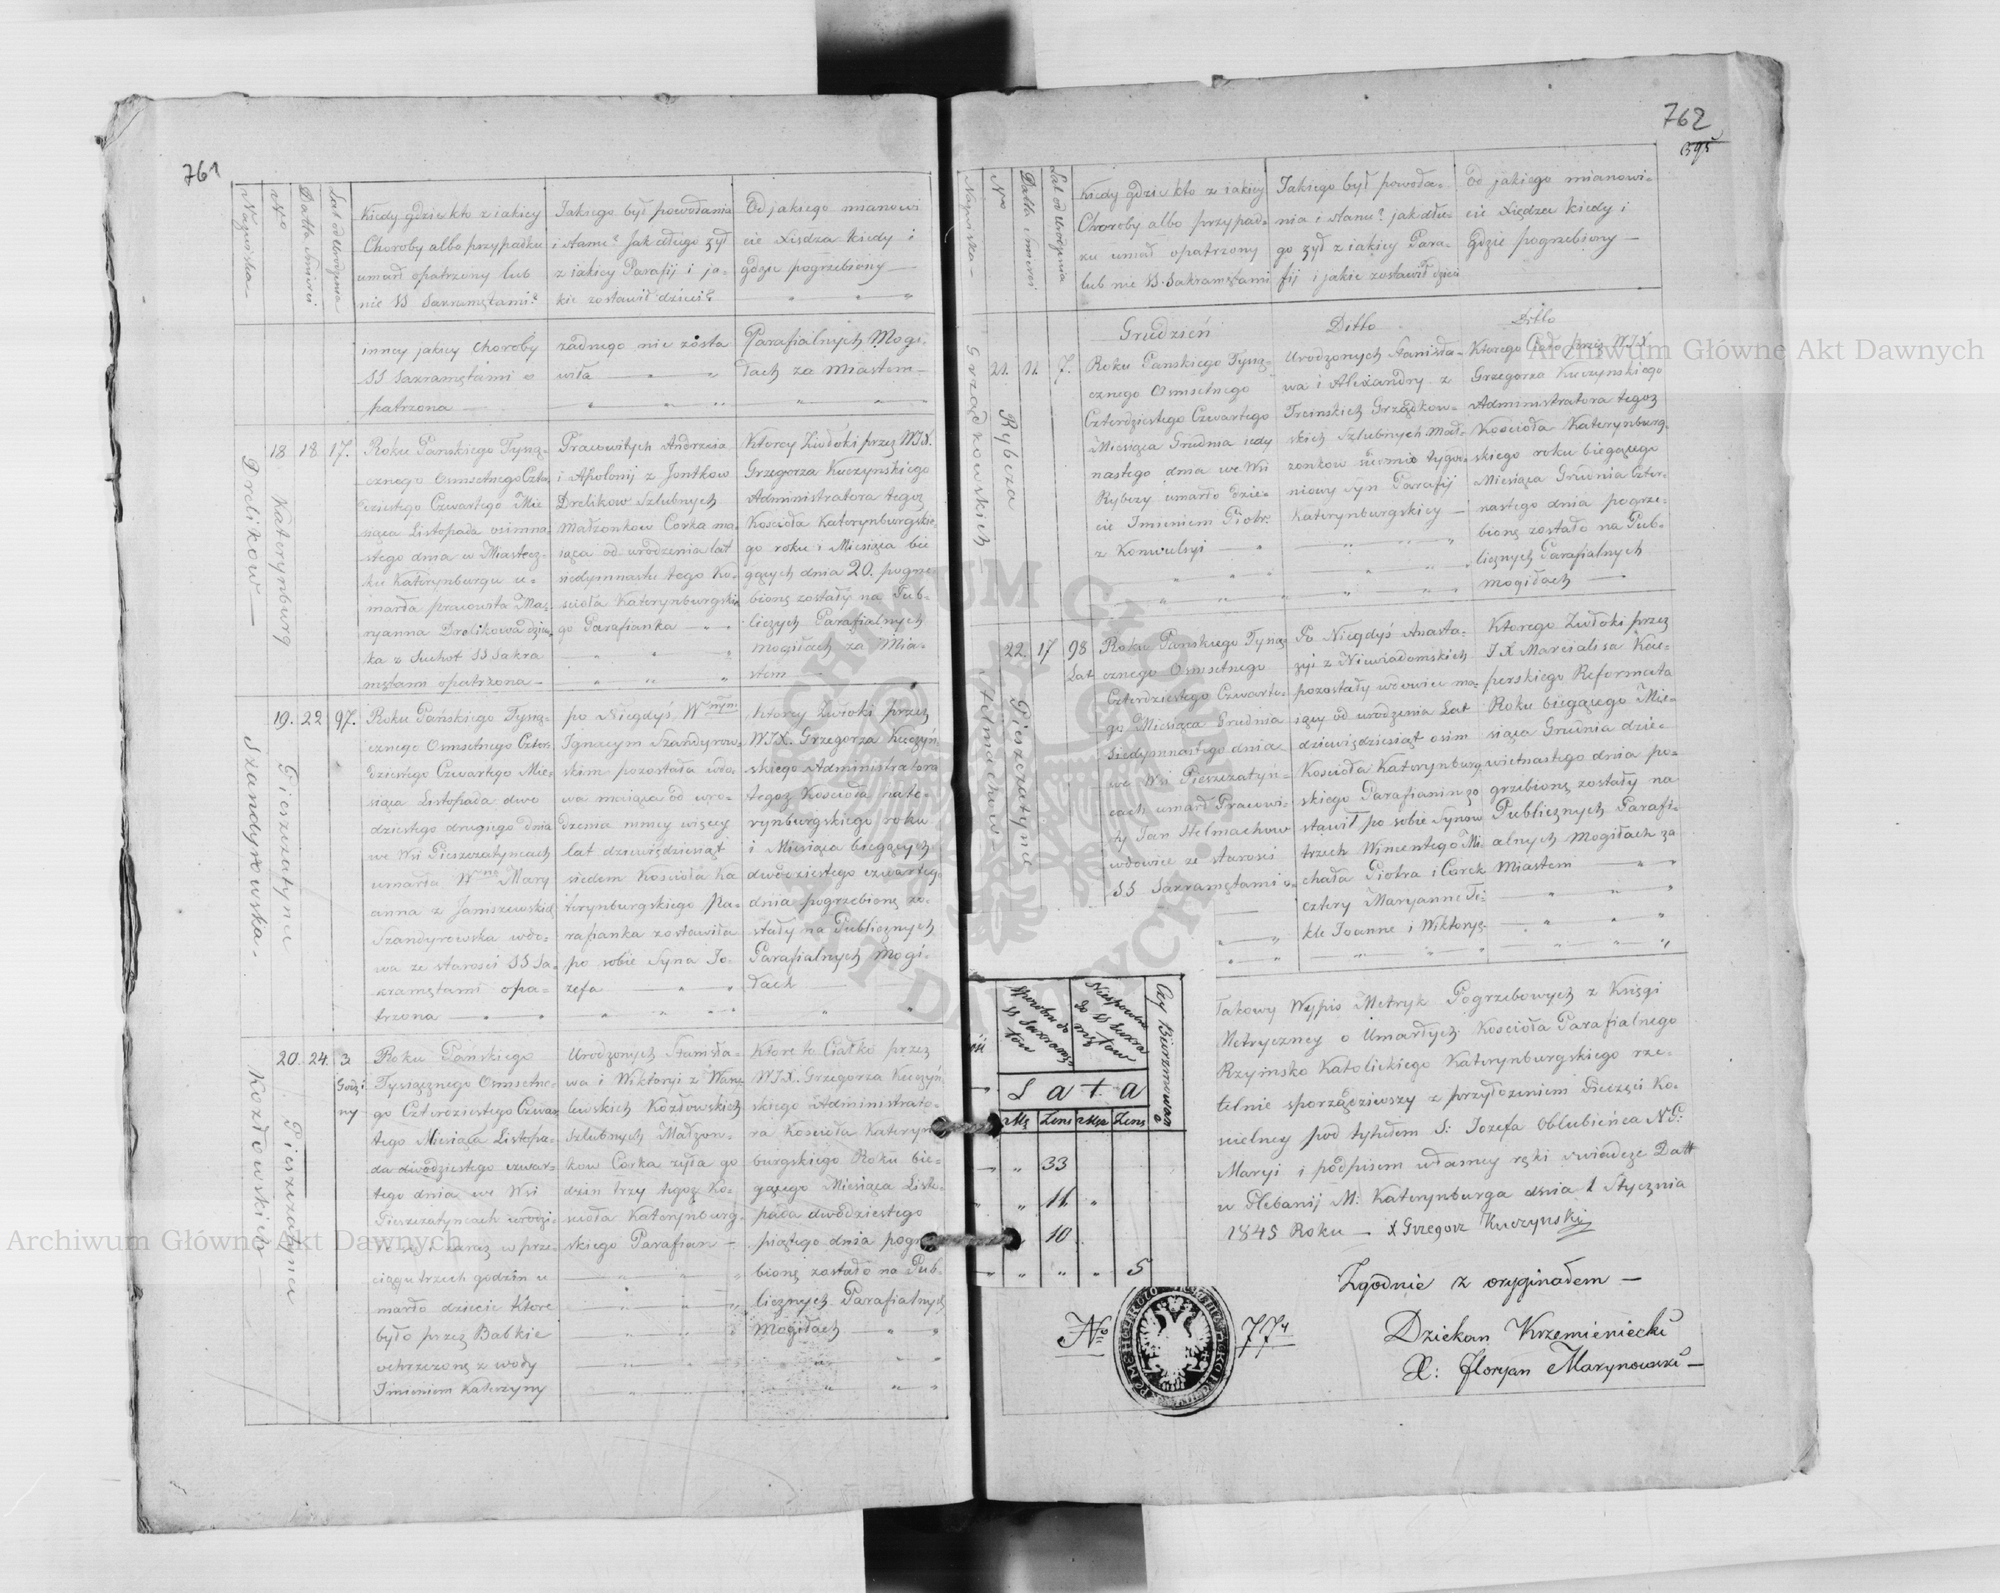 761
Nazwiska
Nro
Datta Smierci
Lat od Urodzenia
Kiedy gdzie kto z iakiey
Choroby albo przypadku
umarł opatrzony lub
nie SS Sakramentami?
Jakiego był powołania
i stanu? Jak długo żył
z iakiey Parafij i ja-
kie zostawił dzieci?
Od jakiego mianowi
cie Xiędza kiedy i
gdzie pogrzebiony —
inney jakiey choroby
SS Sakramentami o
patrzona —
żadnego nie zosta
wiła —
Parafialnych Mogi-
łach za Miastem —
Drelikow —
18
Katerynburg
18
17.
Roku Pańskiego Tysią-
cznego Osmsetnego Czter
dziestego Czwartego Mie
siąca Listopada osimna-
stego dnia w Miastecz-
ku Katerynburgu u-
marła pracowita Ma-
ryanna Drelikowa dziew
ka z Suchot SS Sakra
mentami opatrzona —
Pracowitych Andrzeia
i Apolonij z Jontkow
Drelikow Szlubnych
Małżonkow Corka ma-
iąca od urodzenia lat
siedymnastu tego Ko-
scioła Katerynburgskie
go Parafianka —
Ktorey Zwłoki przez WJX.
Grzegorza Kuczynskiego
Administratora tegoż
Kościoła Katerynburgskie-
go roku i Miesiąca bie
gących dnia 20. pogrze
bione zostały na Pub-
licznych Parafialnych
Mogiłach za Mia-
stem —
Szandyrowska -
19.
Pieszczatynce
22
97.
Roku Pańskiego Tysią-
cznego Osmsetnego Czter-
dziestego Czwartego Mie-
siąca Listopada dwu
dziestego drugiego dnia
we Wsi Pieszczatyncach
umarła Wna Mary
anna z Janiszewskich
Szandyrowska wdo-
wa ze starosci SS Sa-
kramentami opa-
trzona —
po Niegdyś Wnym
Ignacym Szandyrow-
skim pozostała wdo-
wa maiąca od uro-
dzenia mniey więcey
lat dziewiędziesiąt
siedem Kościoła Ka
terynburgskiego Pa-
rafianka zostawiła
po sobie Syna Jo-
zefa —
Ktorey Zwłoki przez
WJX. Grzegorza Kuczyń
skiego Administratora
tegoż Kościoła Kate-
rynburgskiego roku
i Miesiąca biegących
dwódziestego czwartego
dnia pogrzebione zo-
stały na Publicznych
Parafialnych Mogi-
łach —
Kozłowskich —
20.
Pieszczatynce
24.
3
Godzi
ny
Roku Pańskiego
Tysiącznego Osmsetne-
go Czterdziestego Czwar
tego Miesiąca Listopa-
da dwódziestego czwar-
tego dnia we Wsi
Pieszczatyncach urodzi-
ło się i zaraz w prze-
ciągu trzech godzin u
marło dziecie Ktore
było przez Babkie
ochrzczone z wody
Imieniem Katerzyny
Urodzonych Stanisła-
wa i Wiktoryi z Wanż
lewskich Kozłowskich
Szlubnych Małżon-
kow Corka żyła go
dzin trzy tegoż Ko-
scioła Katerynburg-
skiego Parafian —
Ktore to Ciałko przez
WJX. Grzegorza Kuczyń
skiego Administrato-
ra Kościoła Kateryn
burgskiego Roku bie-
gącego Miesiąca Listo-
pada dwódziestego
piątego dnia pogrze
bione zostało na Pub-
licznych Parafialnych
Mogiłach —
762
395
Nazwiska —
Nro
Datta Smierci
Lat od Urodzenia
Kiedy gdzie kto z iakiey
Choroby albo przypad-
ku umarł opatrzony
lub nie SS. Sakramentami
Jakiego był powoła-
nia i stanu? jak dłu-
go żył z iakiey Para-
fij i jakie zostawił dzieci
Od jakiego mianowi-
cie Xiędza kiedy i
gdzie pogrzebiony —
Grudzień
Ditto
Ditto
Grządkowskich
21.
Rybcza
11.
7.
Roku Pańskiego Tysią-
cznego Osmsetnego
Czterdziestego Czwartego
Miesiąca Grudnia iedy
nastego dnia we Wsi
Rybczy umarło dzie-
cie Imieniem Piotr
z Konwulsyi —
Urodzonych Stanisła-
wa i Alexandry z
Trcinskich Grządkow-
skich Szlubnych Mał-
żonkow siedmio tygod-
niowy syn Parafij
Katerynburgskiey —
Ktorego Ciało przez WJX
Grzegorza Kuczynskiego
Administratora tegoż
Kościoła Katerynburg-
skiego roku biegącego
Miesiąca Grudnia Czter-
nastego dnia pogrze-
bione zostało na Pub-
licznych Parafialnych
Mogiłach —
Stelmachow —
22.
Pieszczatynce
17
98
Lat
Roku Pańskiego Tysią
cznego Osmsetnego
Czterdziestego Czwarte-
go Miesiąca Grudnia
Siedymnastego dnia
we Wsi Pieszczatyn-
cach umarł Pracowi-
ty Jan Stelmachow
wdowiec ze starosci
SS Sakramentami o-
Po Niegdyś Anasta-
zyi z Niewiadomskich
pozostały wdowiec ma-
iący od urodzenia Lat
dziewiędziesiąt osim
Kościoła Katerynburg-
skiego Parafianin zo
stawił po sobie Synow
trzech Wincentego Mi
chała Piotra i Corek
cztery Maryanne Te-
kle Joanne i Wiktorye -
Ktorego Zwłoki przez
JX Marcialisa Kac-
perskiego Reformata
Roku biegącego Mie-
siąca Grudnia dzie-
wietnastego dnia po-
grzebione zostały na
Publicznych Parafi-
alnych Mogiłach za
Miastem —
Sposobn do
SS Sakramę
tow
Niesposobn
do SS Sakra
mę
tow
Czy Bierzmowan
Lata
Mz
Zens
Męz
Zens
33
11
10
5
Takowy Wypis Metryk Pogrzebowych z Księgi
Metryczney o Umarłych Kościoła Parafialnego
Rzymsko Katolickiego Katerynburgskiego rze-
telnie sporządziwszy z przyłożeniem Pieczęci Ko-
scielney pod tytułem S: Jozefa Oblubieńca N.P:
Maryi i podpisem własney ręki swiadczę Datt
w Plebanij M: Katerynburga dnia 1 Stycznia
1845 Roku — X Grzegorz Kuczynski
Zgodnie z oryginałem —
Dziekan Krzemieniecki
X: Floryan Marynowski —
No
774
Archiwum Główne Akt Dawnych
Archiwum Główne Akt Dawnych
ARCHIWUM GŁÓWNE AKT DAWNYCH